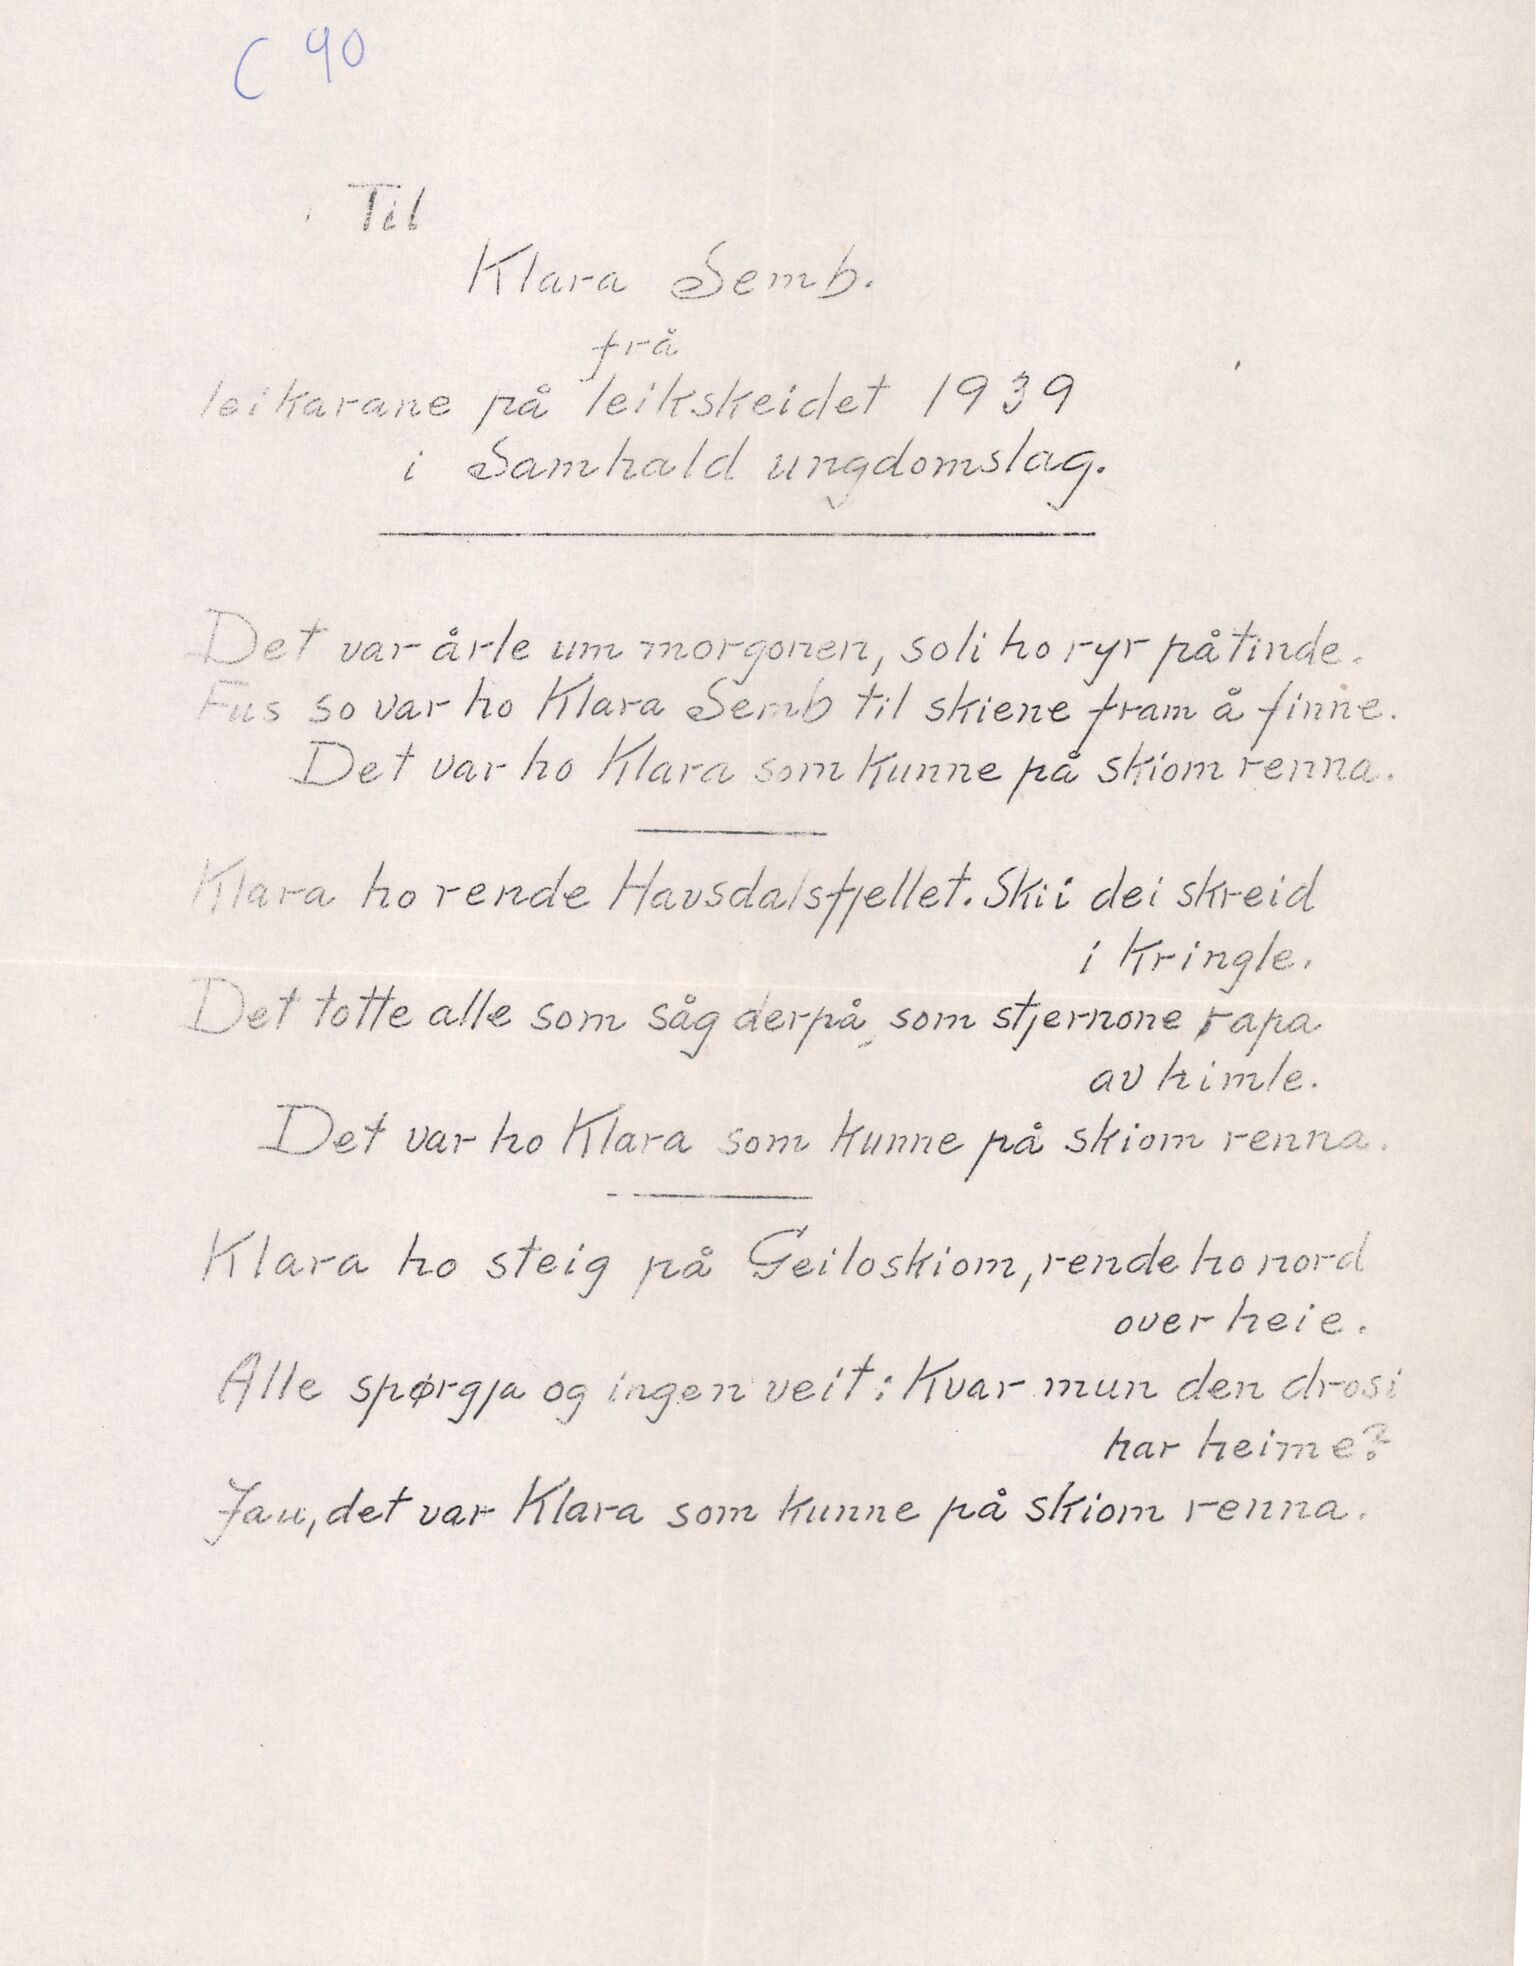 C 90
Til
Klara Semb.
frå
leikarane på leikskeidet 1939
i Samhald ungdomslag.
Det var årle um morgonen, soli ho ryr på tinde.
Fus so var ho Klara Semb til skiene fram å finne.
Det var ho Klara som kunne på skiom renna.
Klara ho rende Havsdalsfjellet. Skii dei skreid
i kringle.
Det totte alle som såg derpå, som stjernone rapa
av himle.
Det var ho Klara som kunne på skiom renna.
Klara ho steig på Geiloskiom, rende ho nord
over heie.
Alle spørgja og ingen veit: Kvar mun den drosi
har heime?
Jau, det var Klara som kunne på skiom renna.